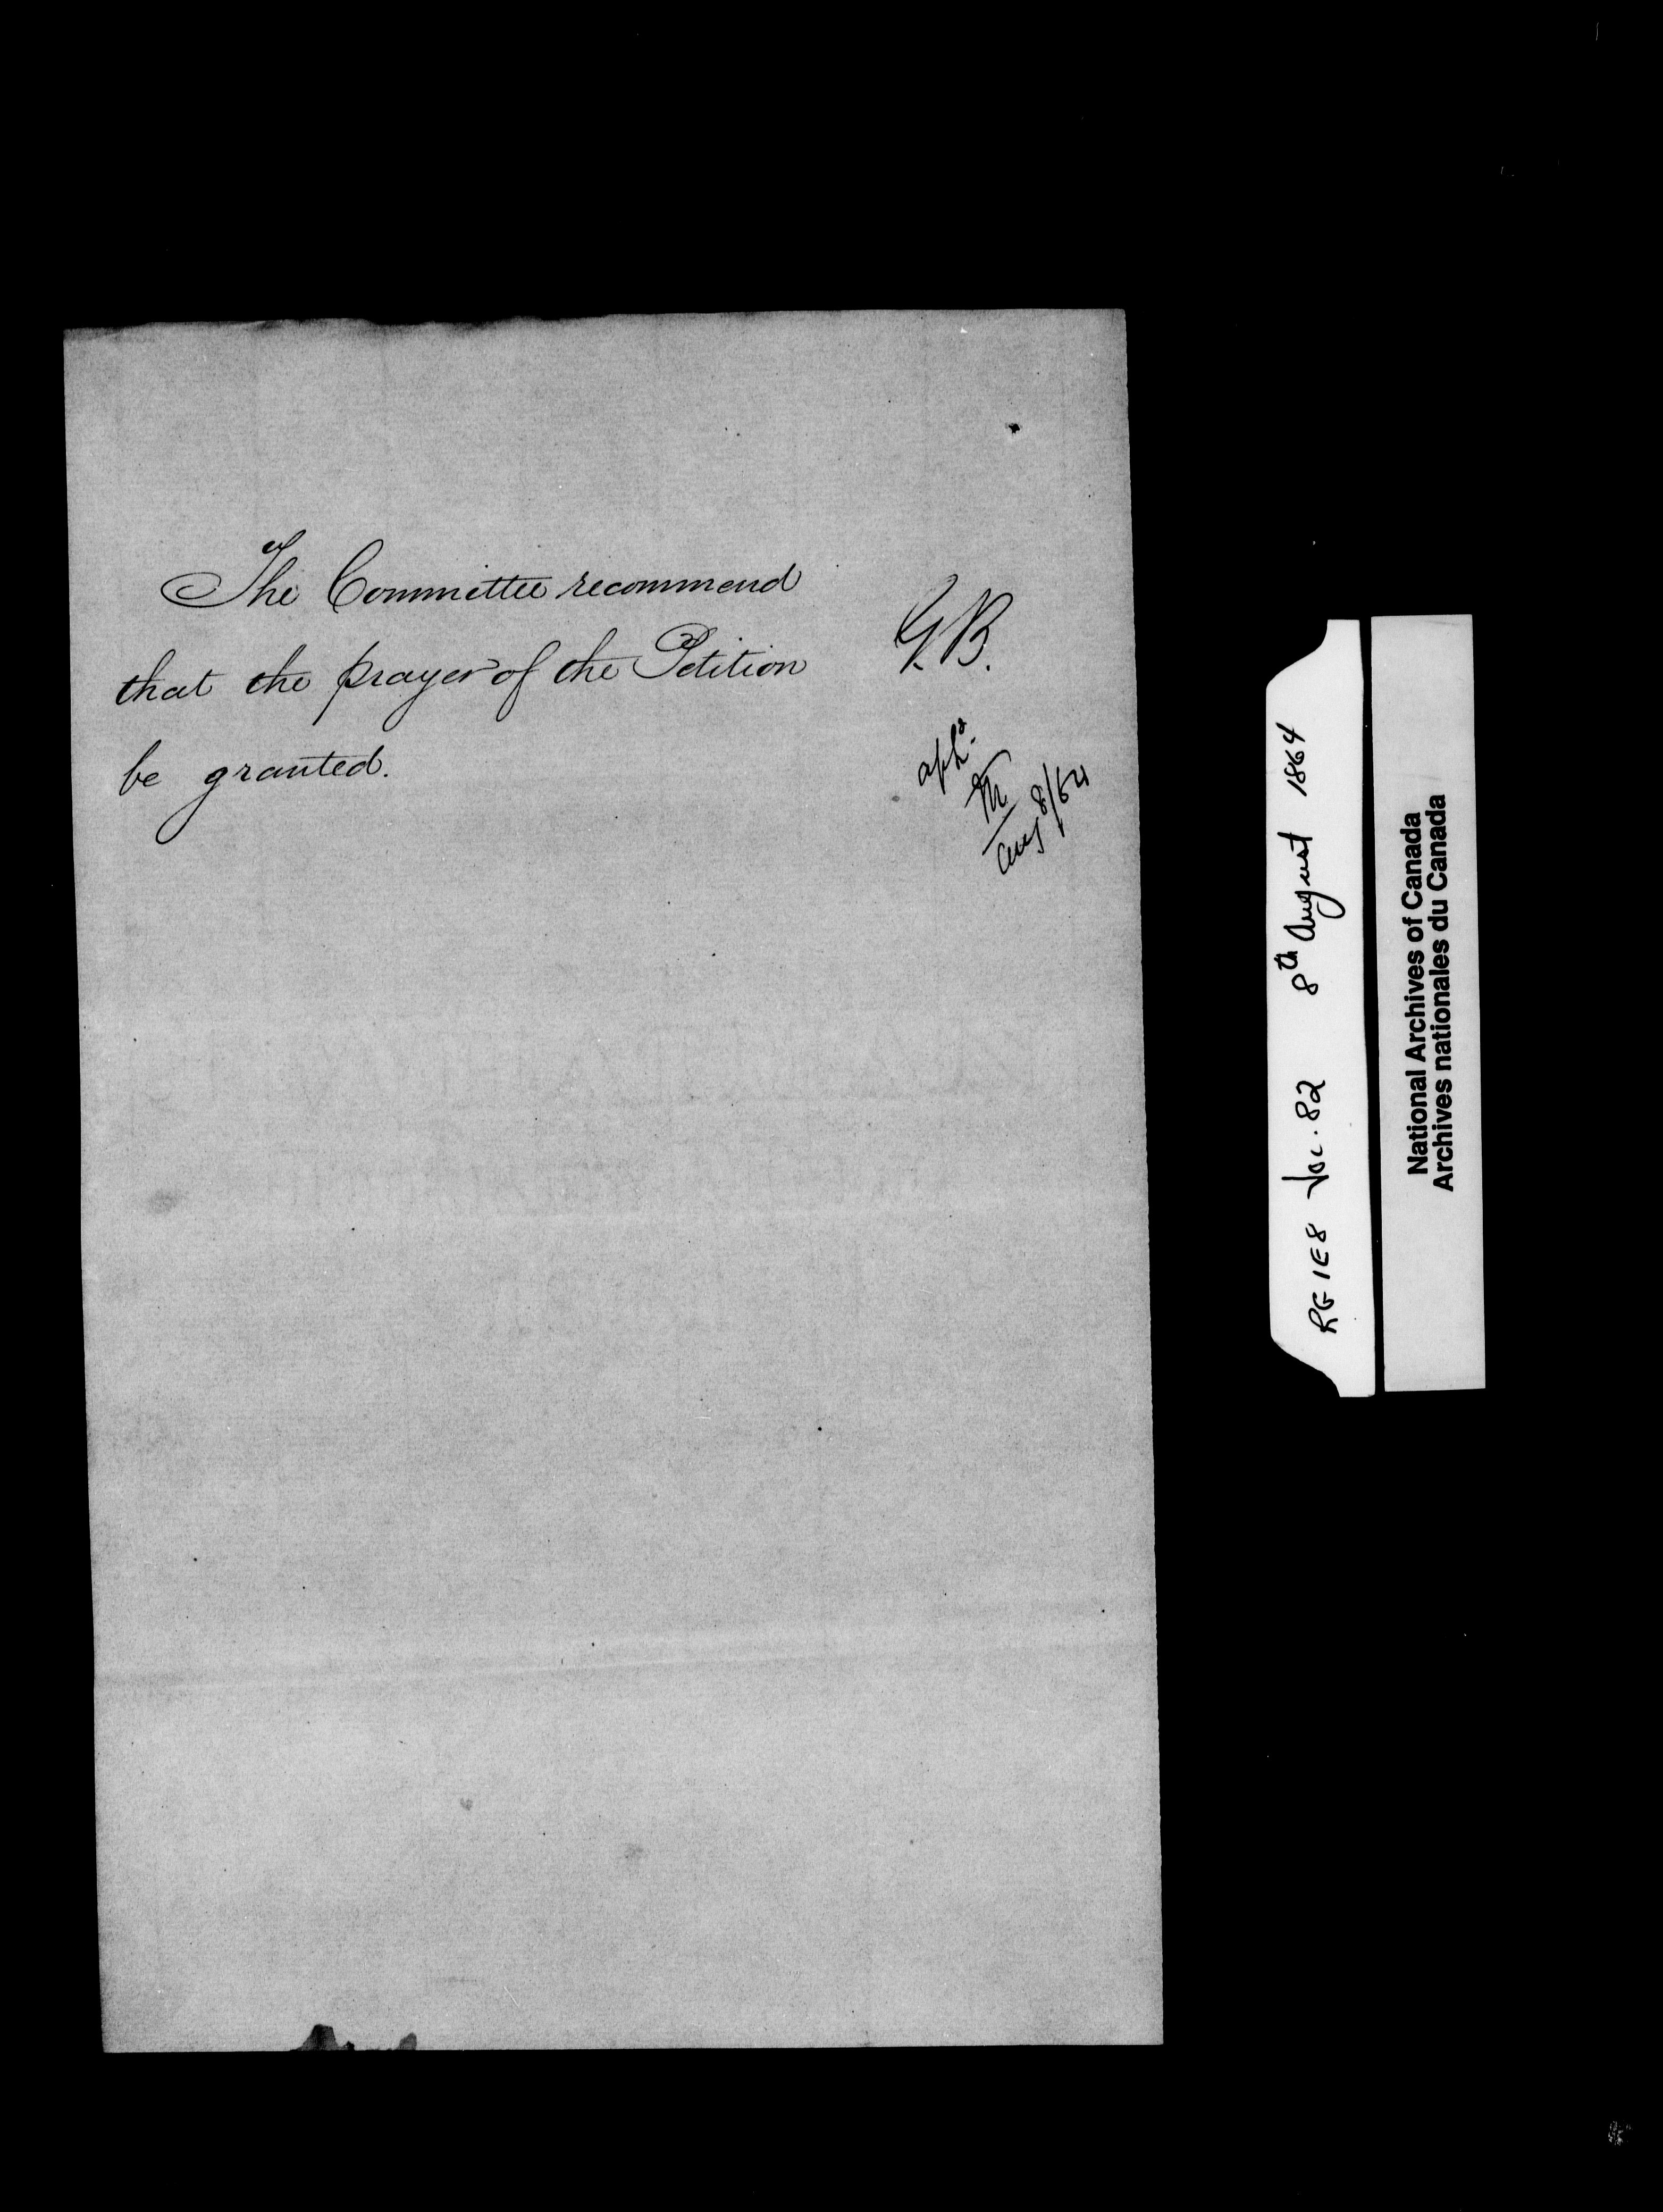 The Committee recommend
that the prayer of the Petition
be granted.
G.B.
Aug 8/64
RG 1E8 Vol. 82 8th August 1864
National Archives of Canada
Archives nationales du Canada